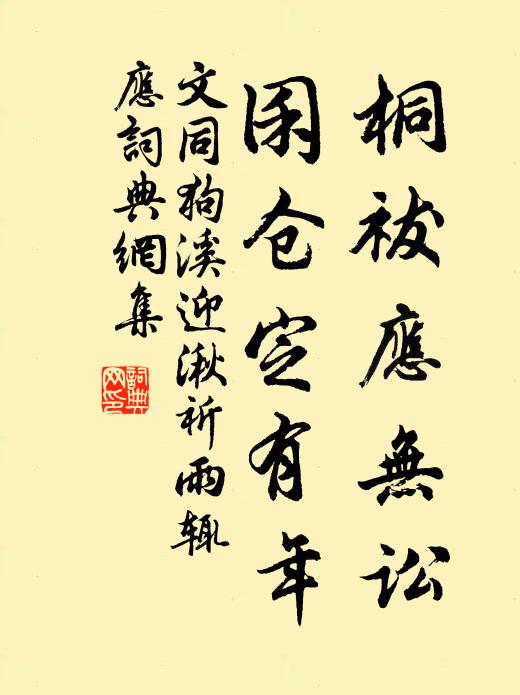 桐祓應無訟
囷仓定有年
文同狗溪迎湫祈雨辄
應詞典網集
詞典
网印